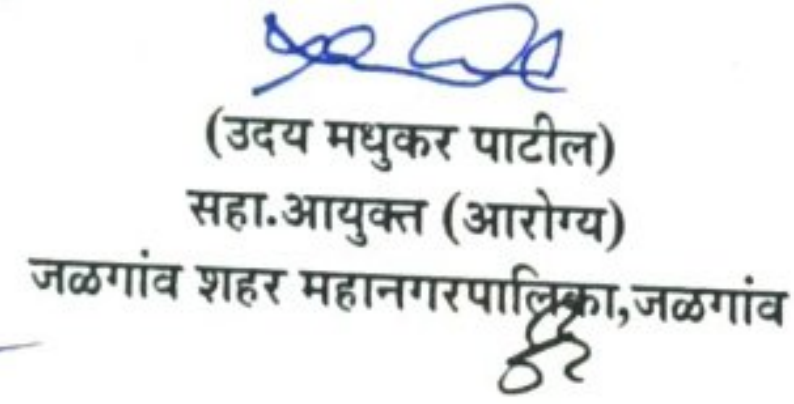 (उदय मधुकर पाटील)
सहा.आयुक्त (आरोग्य)
जळगांव शहर महानगरपालिका,जळगांव